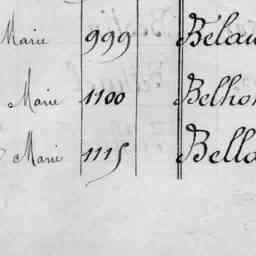 Marie 999 Belau
Marie 1100 Belhom
Marie 1115 Bello